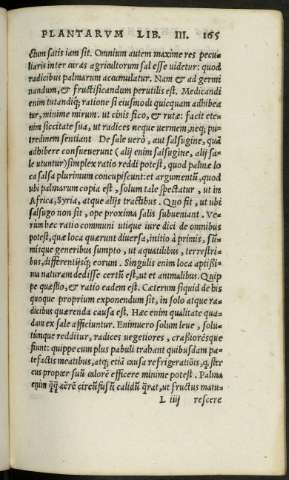 PLANTARVM LIB. III. 165
ctum satis iam sit. Omnium autem maxime res pecu=
liaris inter auras agricultorum sal esse uidetur: quod
radicibus palmarum accumulatur. Nam & ad germi
nandum, & fructificandum perutilis est. Medicandi
enim tutandiq; ratione si eiusmodi quicquam adhibea
tur, minime mirum. ut cinis fico, & rutæ: facit ete=
nim siccitate sua, ut radices neque uermem, neq; pu=
tredinem sentiant. De sale uerò, aut salsugine, quā
adhibere consueuerunt (alij enim salsugine, alij sa=
le utuntur) simplex ratio reddi potest, quòd palmæ lo
ca salsa plurimum concupiscunt: et argumentū, quod
ubi palmarum copia est, solum tale spectatur, ut in
Africa, Syria, atque alijs tractibus. Quo fit, ut ubi
salsugo non sit, ope proxima salis subueniant. Ve=
rum hæc ratio communi utique iure dici de omnibus
potest, quæ loca quærunt diuersa, initio à primis, sūm
misque generibus sumpto, ut aquatilibus, terrestri=
bus, differentijsq; eorum. Singulis enim loca aptissi=
mu naturam dedisse certū est, ut et animalibus. Quip
pe quæstio, & ratio eadem est. Cæterum siquid de his
quoque proprium exponendum sit, in solo atque ra=
dicibus quærenda causa est. Hæc enim qualitate qua=
dam ex sale afficiuntur. Enimuero solum leue, solu=
timque redditur, radices uegetiores, crassioresque
fiunt: quippe cum plus pabuli trahant quibusdam pa=
tefactis meatibus, atq; etiā causa refrigerationis,
cus propter suū calorē efficere minime potest. Palma
enim aërē calidū ut fructus matu=
L iiij rescere